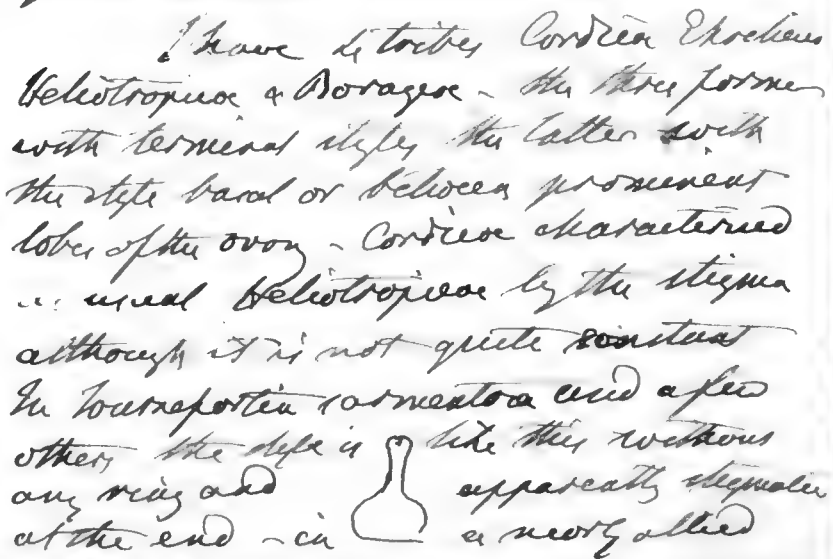 I have 4 tribes Cordieæ Ehretieæ
Heliotropieæ & Borageæ - the three former
with terminal styles the latter with
the style basal or between prominent
lobes of the ovary - Cordieæ characterised
as usual Heliotropieæ by the stigma
although it is not quite constant
In Tournefortia sarmentosa and a few
others the style is like this without
any ring and apparently stigmatic
at the end - in a nearly allied